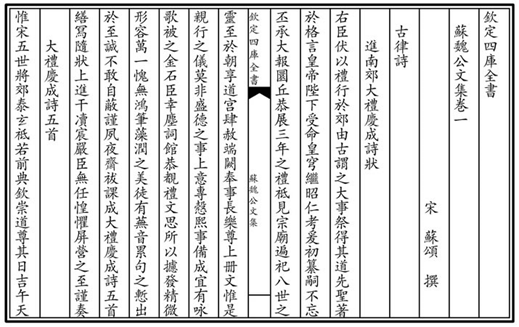 欽定四庫全書
蘇魏公文集卷一
宋 蘇頌 撰
古律詩
進南郊大禮慶成詩狀
右臣伏以禮行於郊由古謂之大事祭得其道先聖著
於格言皇帝陛下受命皇穹繼昭仁考爰初纂嗣不忘
丕承大報圜丘恭展三年之禮祗見宗廟遍祀八世之
欽定四庫全書 蘇魏公文集
靈至於朝享道宫肆赦端闕奉事長樂尊上冊文惟是
親行之儀莫非盛德之事上意專愨熙事備成宜有咏
歌被之金石臣幸塵詞館恭觀禮文思所以攄發精微
形容萬一愧無鴻筆藻潤之美徒有蕪音累句之慙出
於至誠不敢自蔽謹夙夜齋祓課成大禮慶成詩五首
繕寫隨狀上進干凟宸嚴臣無任惶懼屏營之至謹奏
大禮慶成詩五首
惟宋五世將郊泰玄祗若前典欽崇道尊其日吉午天